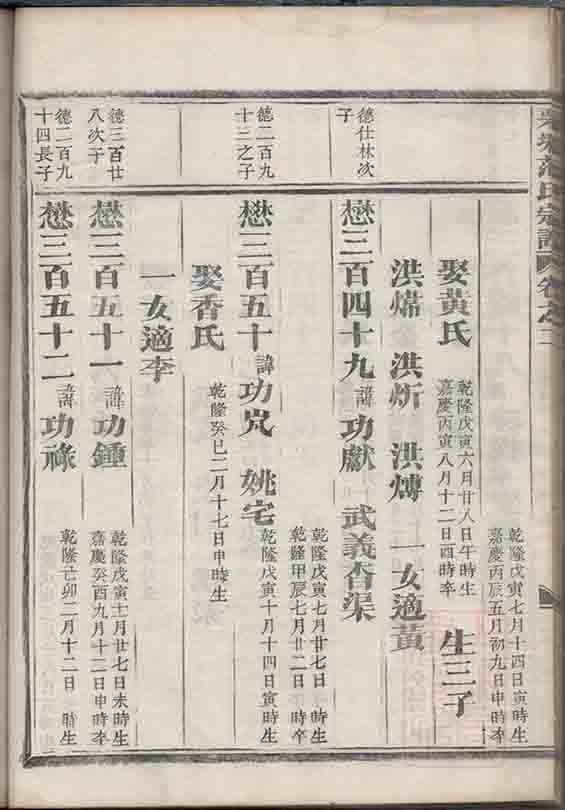 范氏宗譜 卷之三
乾隆戊寅七月十四日寅時生
嘉慶丙辰五月初九日申時卒
娶黃氏
乾隆戊寅六月廿八日午時生
嘉慶丙寅八月十二日酉時卒
生三子
洪㷸 洪炘 洪煿 一女適黃
德仕林次子
懋三百四十九 諱功獻 武義杳渠
乾隆戊寅七月廿七日 時生
乾隆甲辰七月廿二日 時卒
德二百九十三之子
懋三百五十 諱功 姚宅
乾隆戊寅十月十四日寅時生
娶香氏
乾隆癸巳二月十七日申時生
一女適李
德三百廿八次子
懋三百五十一 諱功鍾
乾隆戊寅十一月廿七日未時生
嘉慶癸酉九月十二日申時卒
德二百九十四長子
懋三百五十二 諱功祿
乾隆己卯二月十二日 時生